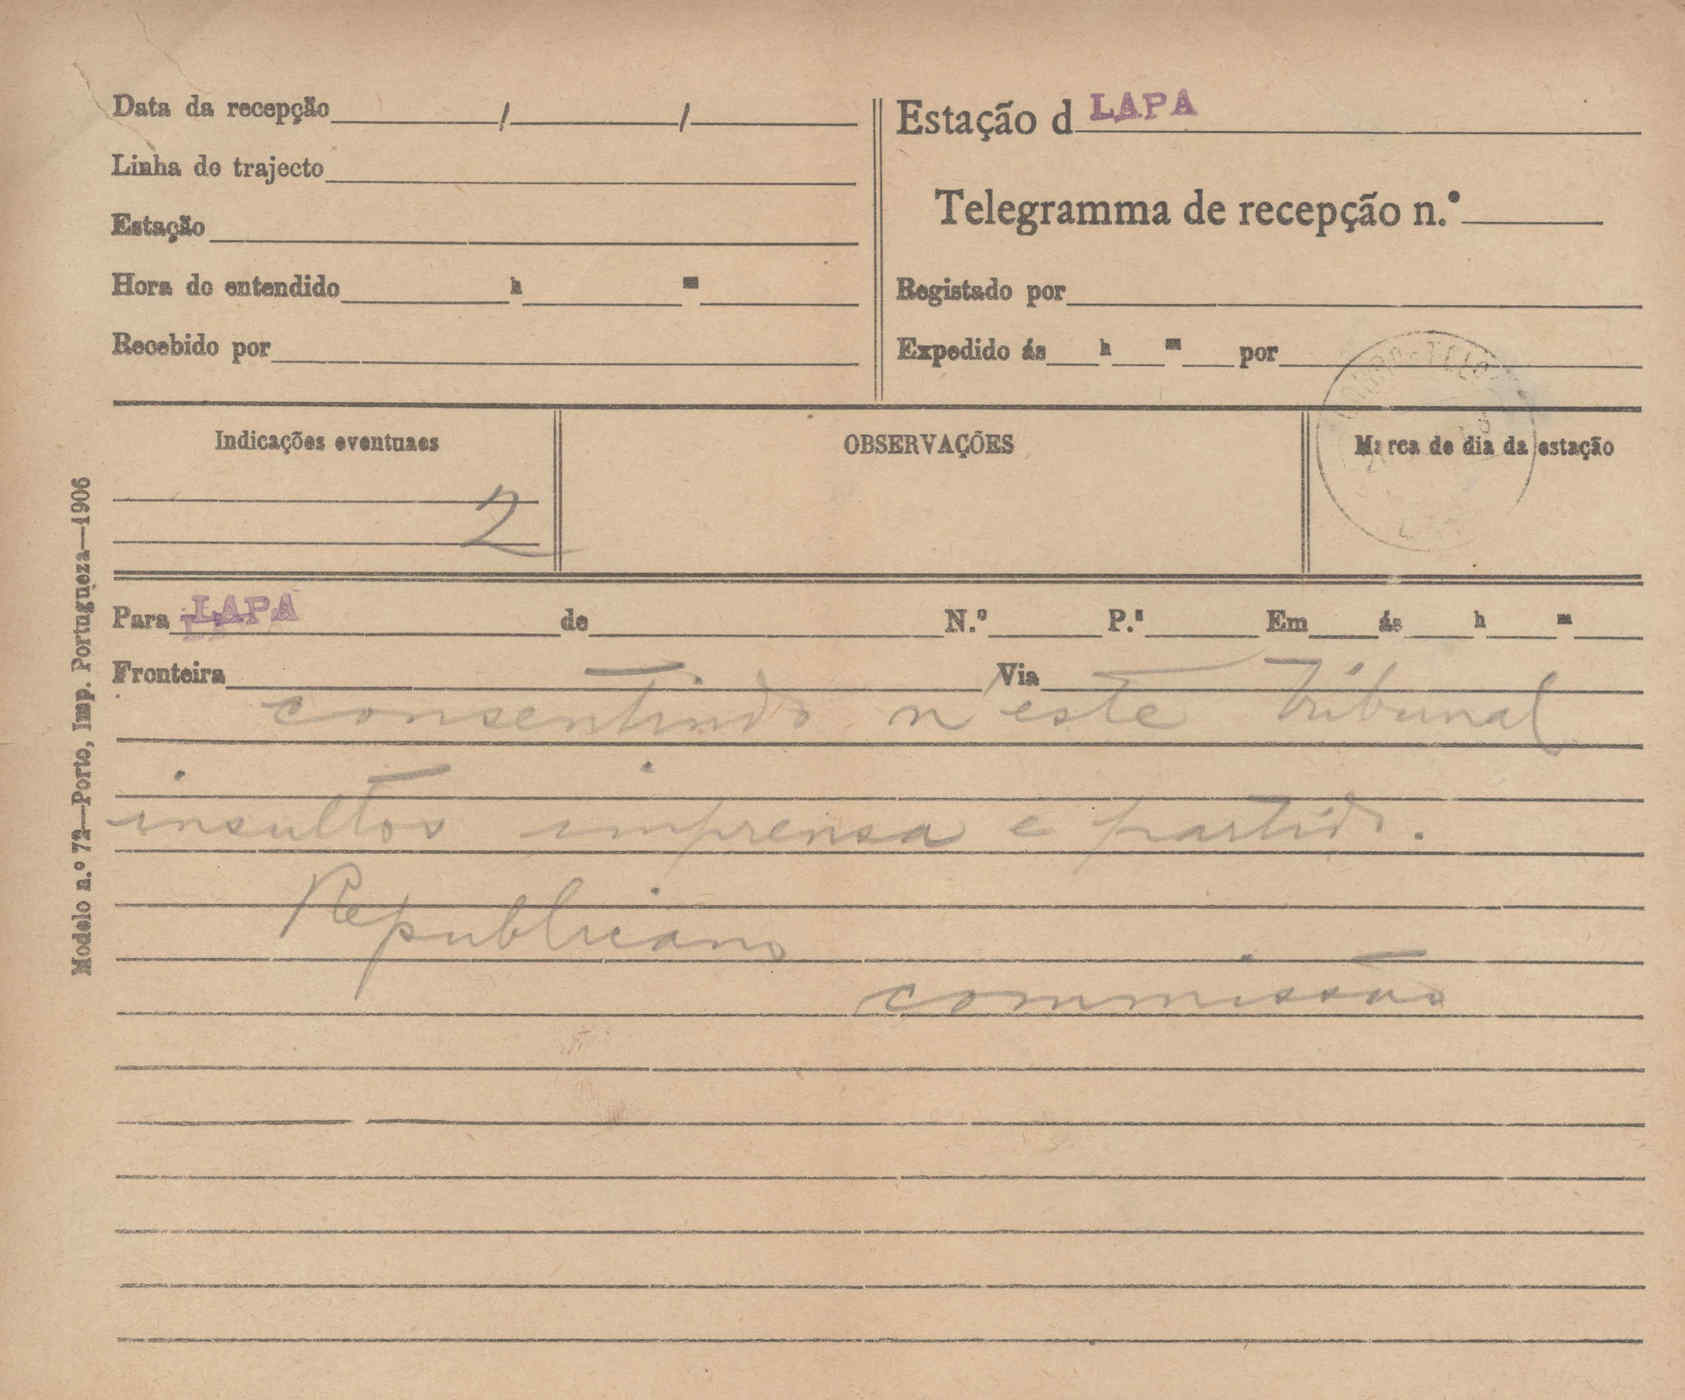 Data da recepção / /
Linha de trajecto
Estação
Hora do entendido h m
Recebido por
Estação d LAPA
Telegramma de recepção n.º
Registado por
Expedido ás h m por
Indicações eventuaes
2
OBSERVAÇÕES
Marca de dia da estação
Para LAPA de N.º P.ª Em ás h m
Fronteira Via
consentindo n'este tribunal
insultos imprensa e partido.
Republicano
commissão
Modelo n.º 72—Porto, Imp. Portugueza—1906